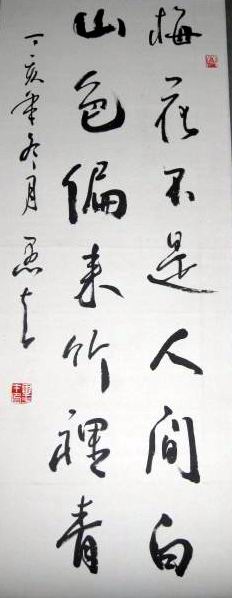 梅花不是人間白
山色偏来竹裡青
丁亥年冬月